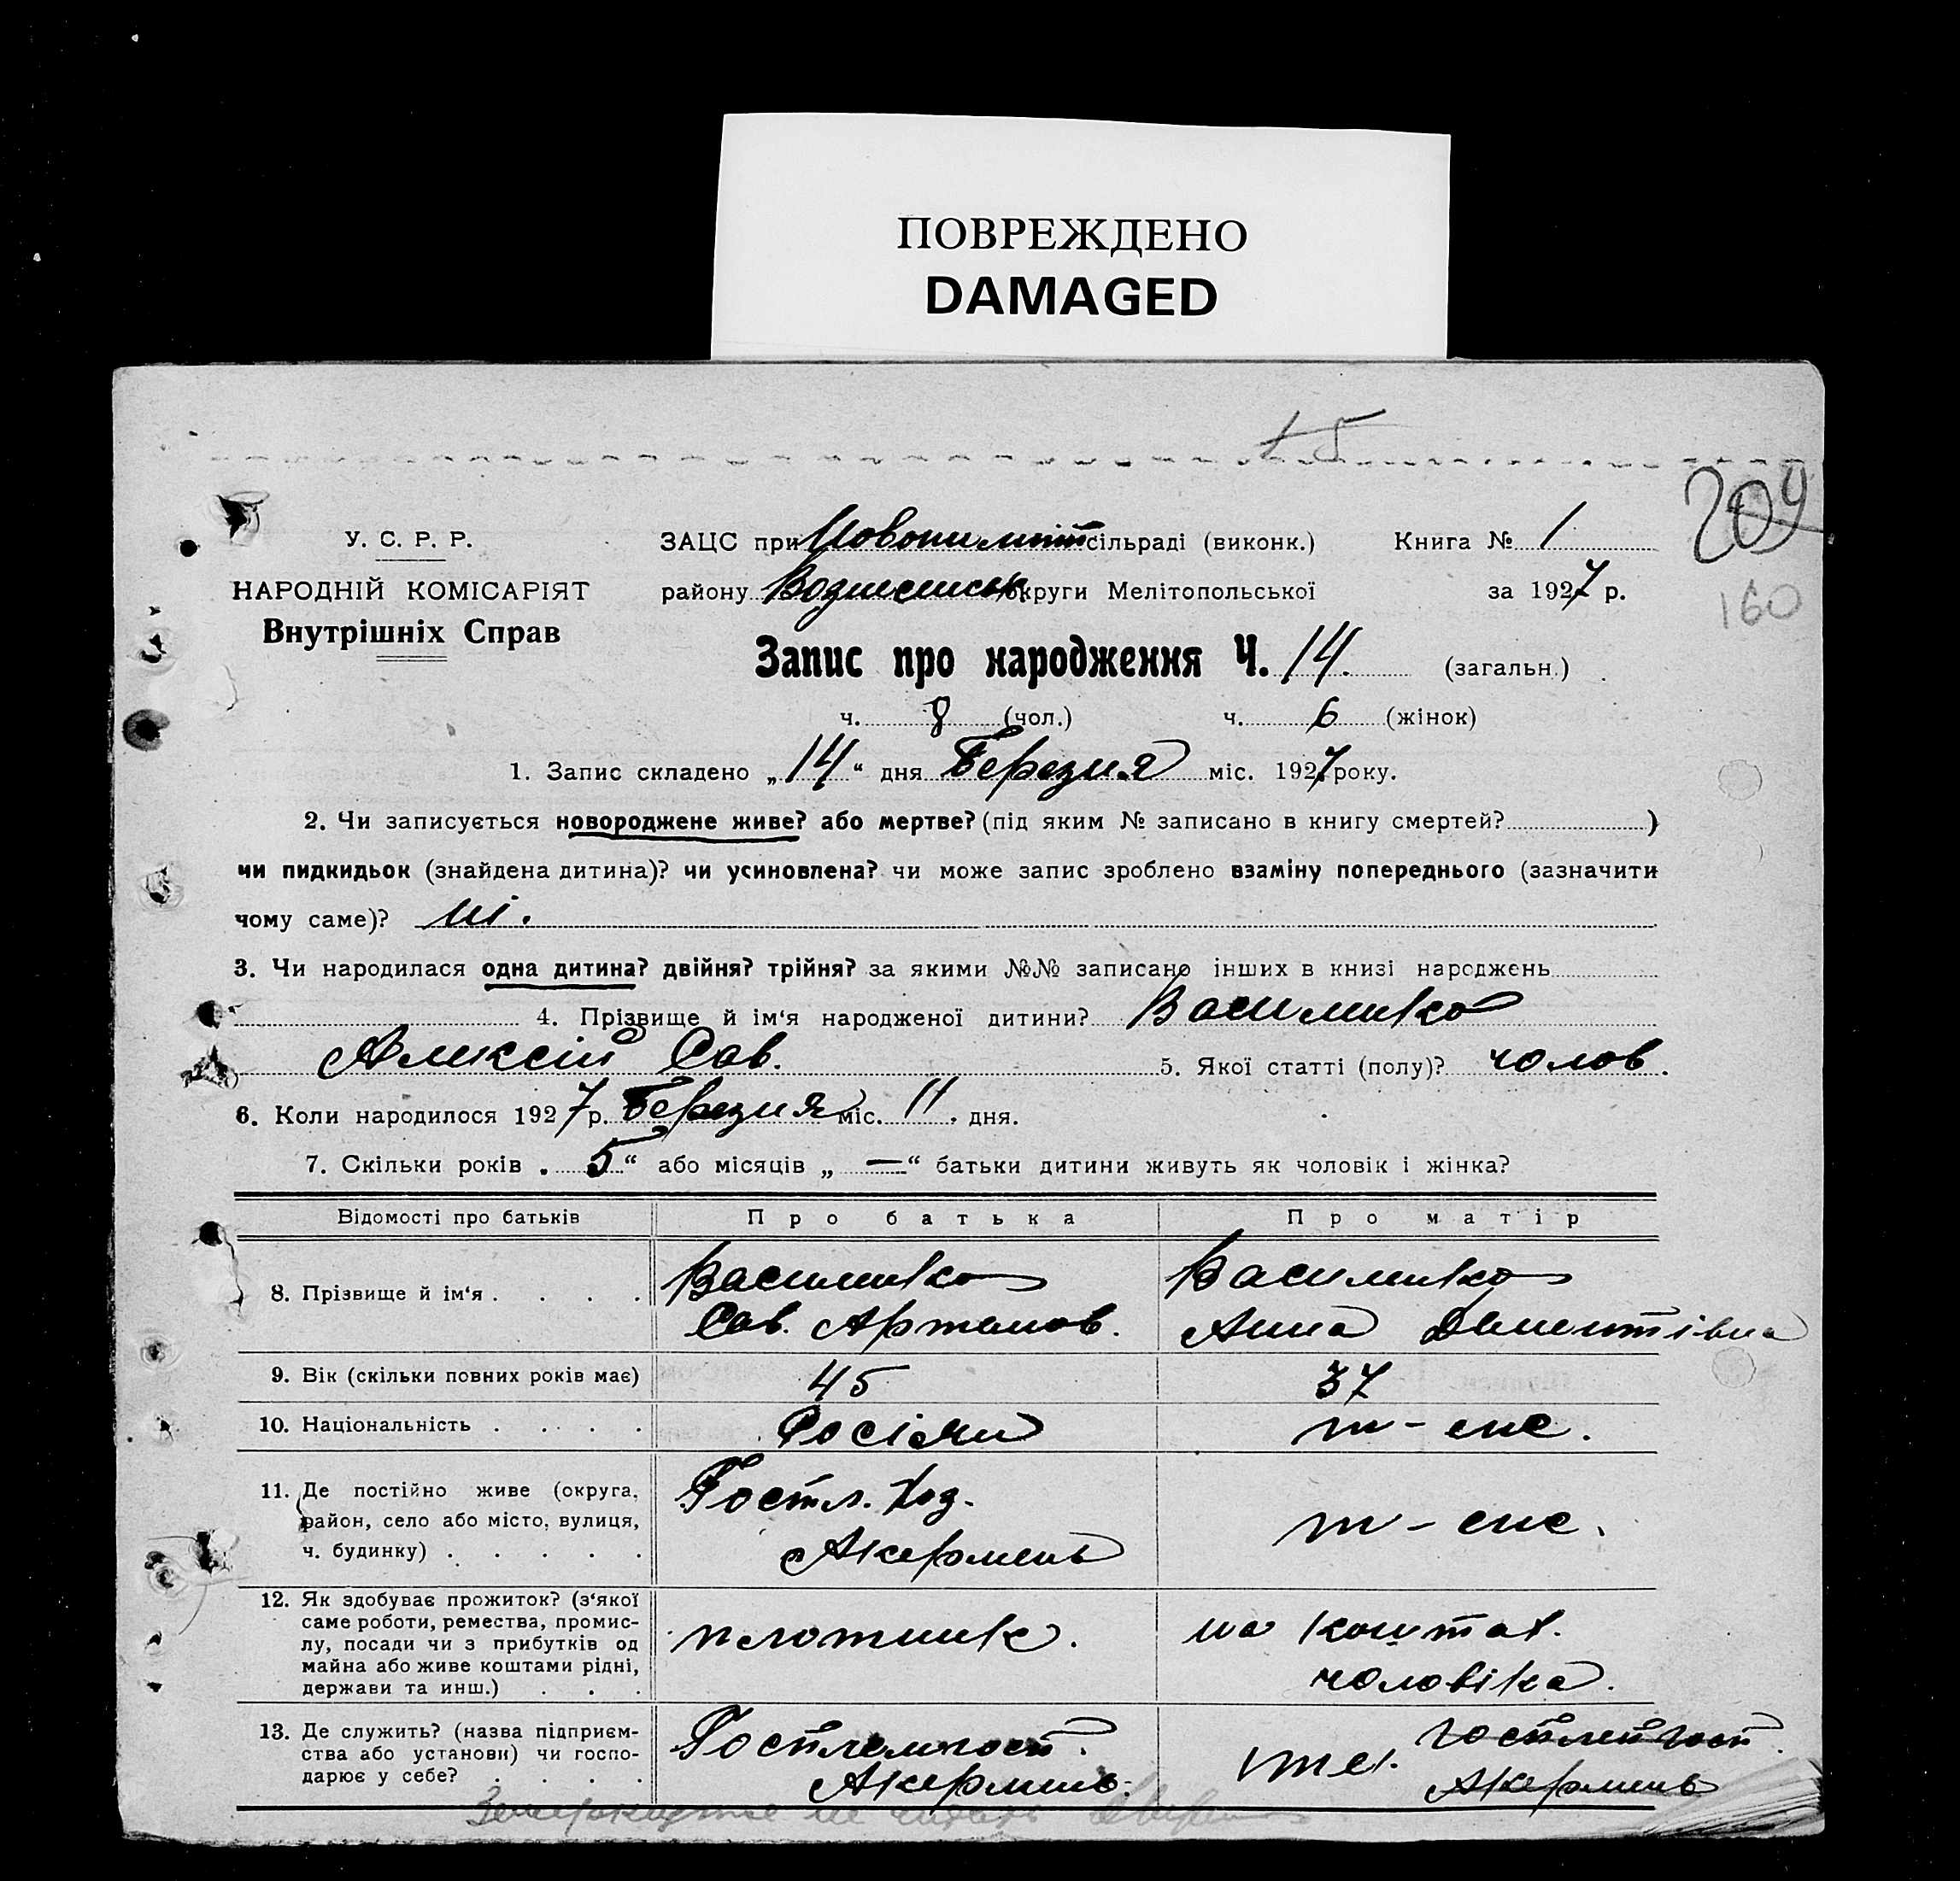 ПОВРЕЖДЕНО
DAMAGED
209
160
У. С. Р. Р.
НАРОДНІЙ КОМІСАРІЯТ
Внутрішніх Справ
ЗАЦС при Новопилип сільраді (виконк.) Книга № 1
району Вознесенськ округи Мелітопольської за 1927 р.
Запис про народження Ч. 14. (загальн.)
ч. 8 (чол.) ч. 6 (жінок)
1. Запис складено „14“ дня Березня міс. 1927 року.
2. Чи записується новороджене живе? або мертве? (під яким № записано в книгу смертей? )
чи пидкидьок (знайдена дитина)? чи усиновлена? чи може запис зроблено взаміну попереднього (зазначити
чому саме)? ні.
3. Чи народилася одна дитина? двійня? трійня? за якими №№ записано інших в книзі народжень
4. Прізвище й ім‘я народженої дитини? Василико
Алексій Сав. 5. Якої статті (полу)? чолов.
6. Коли народилося 1927 р. Березня міс. 11. дня.
7. Скільки років „5“ або місяців „—“ батьки дитини живуть як чоловік і жінка?
Відомості про батьків Про батька Про матір
8. Прізвище й ім‘я . . . . Василико Василико
Сав. Артамов. Анна Дементівна
9. Вік (скільки повних років має) 45 37
10. Національність . . . . Росіяни т-еме.
11. Де постійно живе (округа,
район, село або місто, вулиця,
ч. будинку) . . . . .
Акермень
12. Як здобуває прожиток? (з‘якої
саме роботи, ремества, промис-
лу, посади чи з прибутків од
майна або живе коштами рідні,
держави та инш.) . . .
плотник. на коштах.
чоловіка.
13. Де служить? (назва підприєм-
ства або установи) чи госпо-
дарює у себе? . . . .
Госплемгосп.
Акермень. Акермень